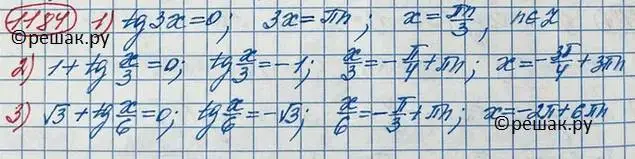 1184 1) tg3x=0; 3x=πn; x=πn/3, n∈Z
2) 1+tg x/3=0; tg x/3=-1; x/3=-π/4+πn; x=-3π/4+3πn
3) √3+tg x/6=0; tg x/6=-√3; x/6=-π/3+πn; x=-2π+6πn
©решак.ру
©решак.ру